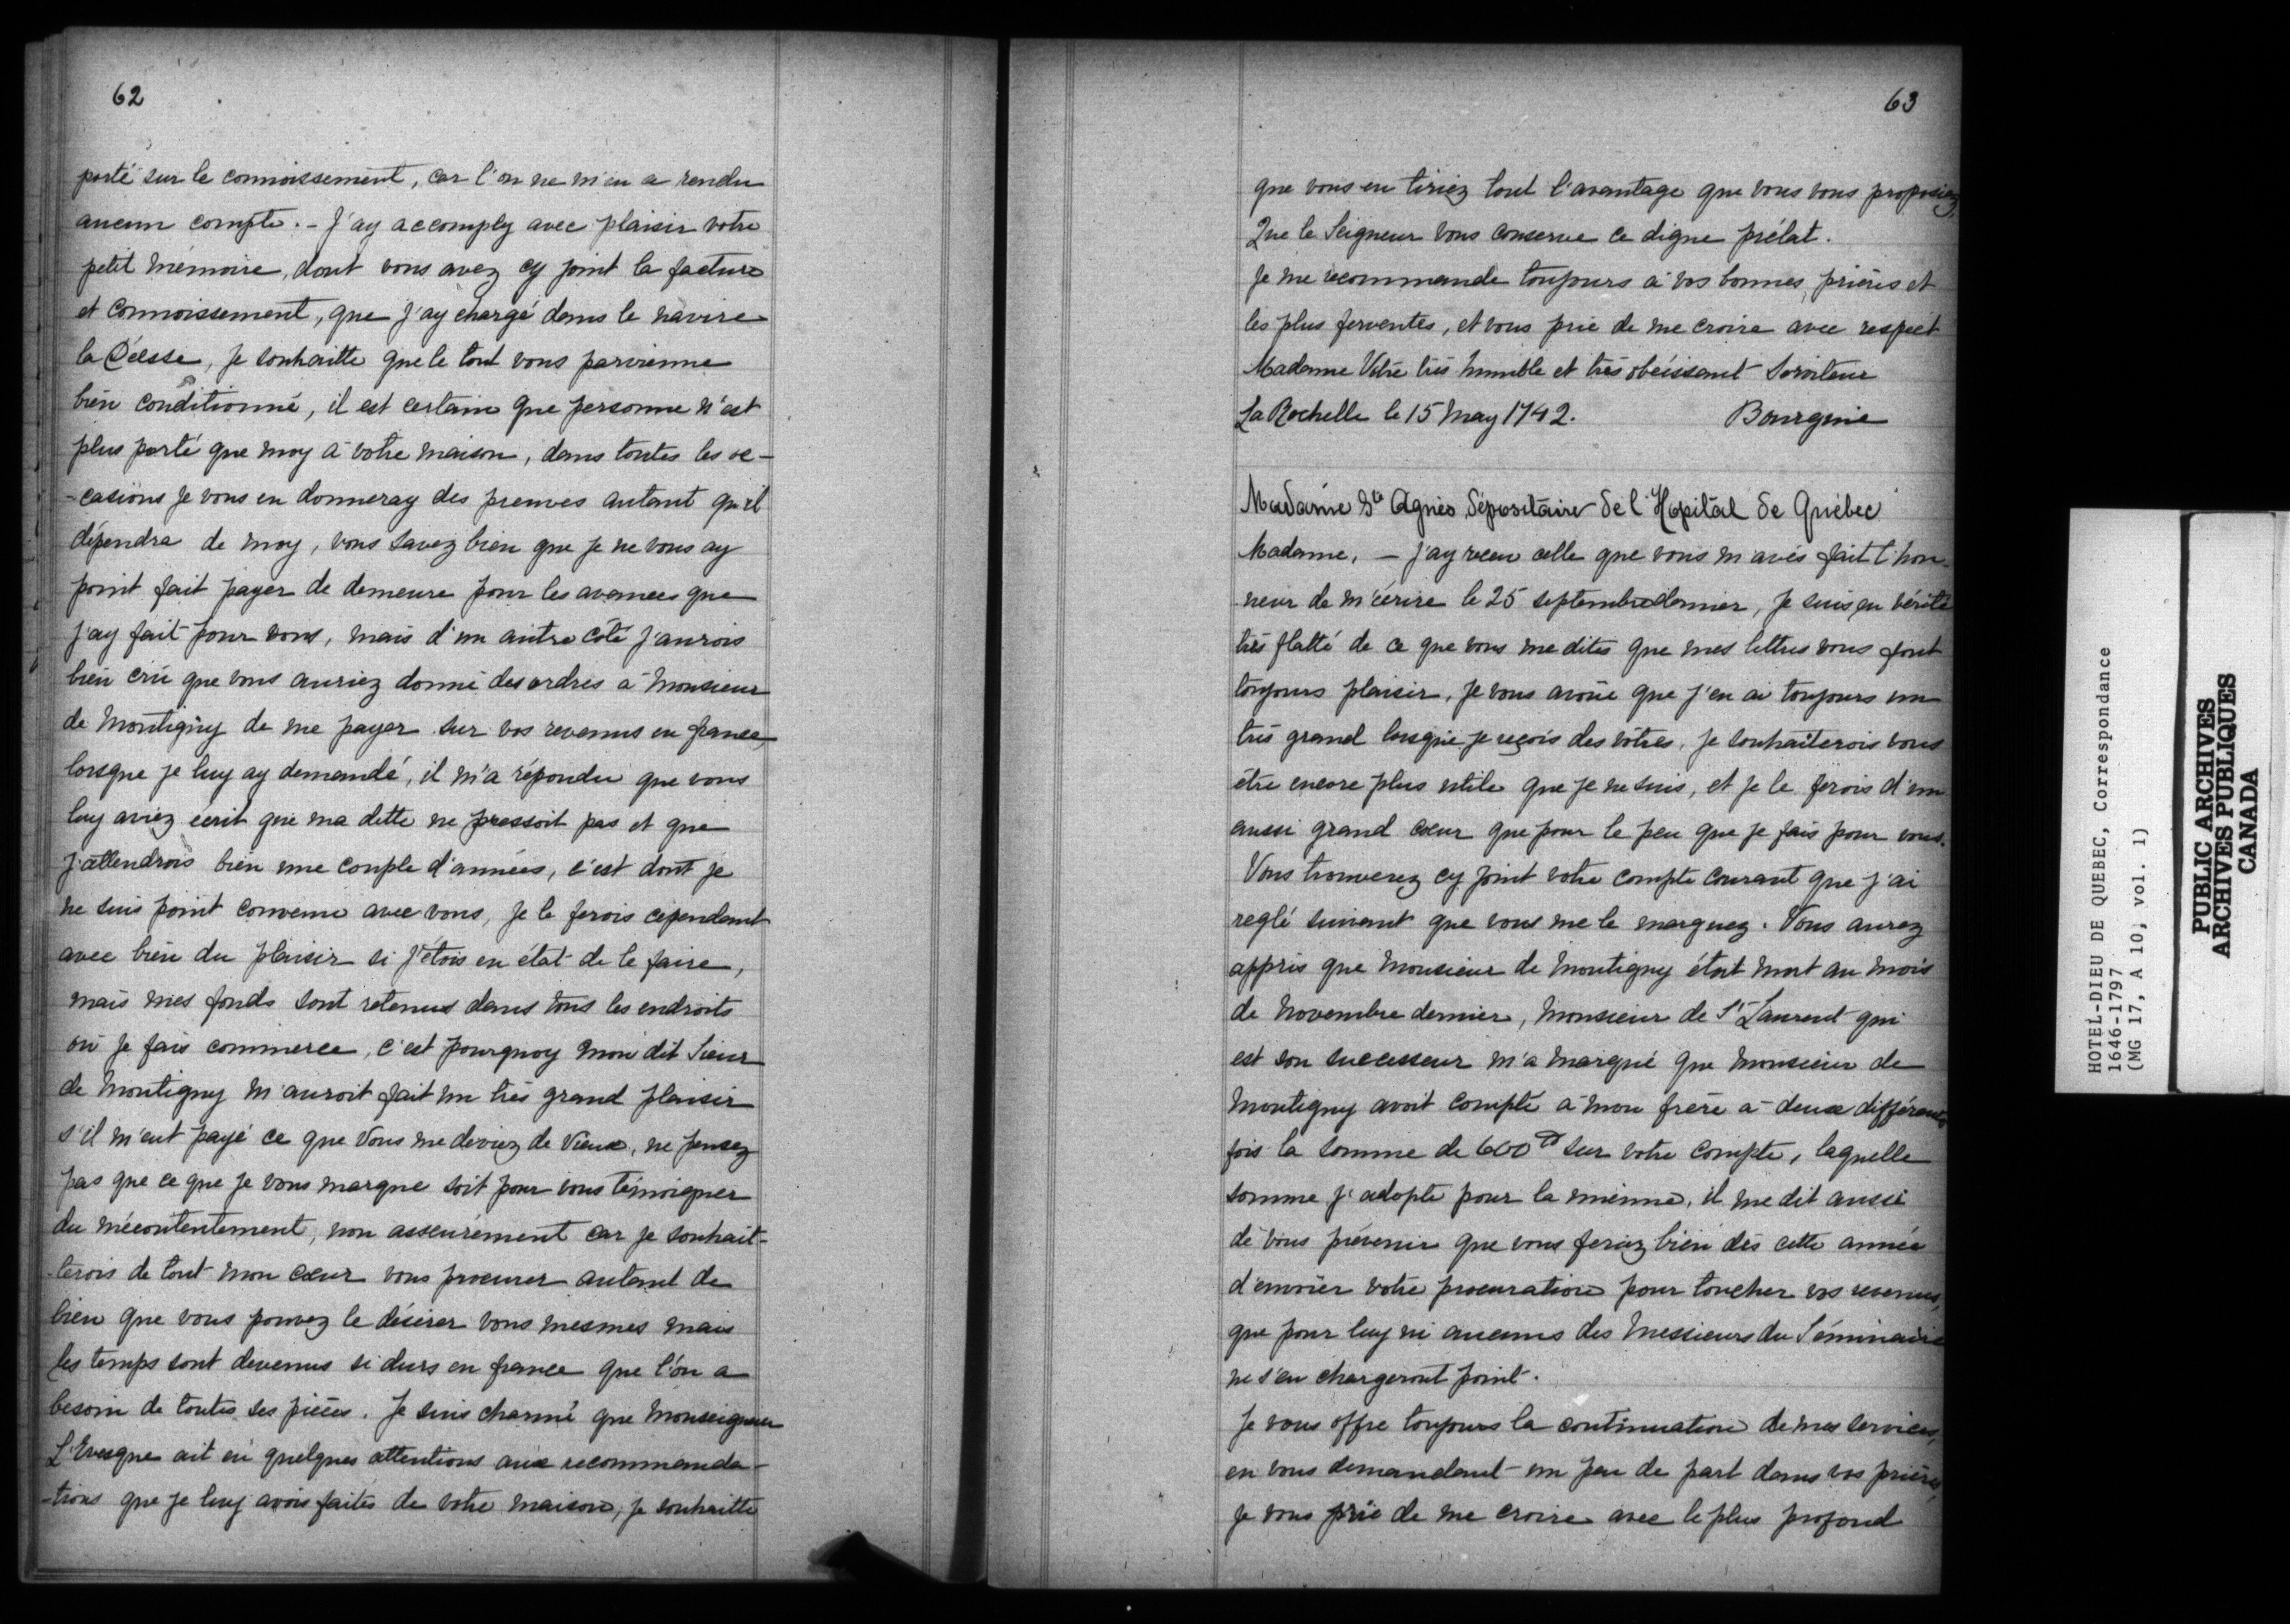 62
porté sur le connoissement, car l'on ne m'en a rendu
aucun compte. - J'ay accomply avec plaisir votre
petit mémoire, dont vous avez cy joint la facture
et connoissement, que j'ay chargé dans le navire
la Déesse, je souhaitte que le tout vous parvienne
bien conditionné, il est certain que personne n'est
plus porté que moy à votre maison, dans toutes les oc-
-casions je vous en donneray des preuves autant qu'il
dépendra de moy, vous savez bien que je ne vous ay
point fait payer de demeure pour les avances que
j'ay fait pour vous, mais d'un autre côté j'aurois
bien crû que vous auriez donné des ordres à Monsieur
de Montigny de me payer sur vos revenus en france,
lorsque je luy ay demandé, il m'a répondu que vous
luy aviez écrit que ma dette ne pressoit pas et que
j'attendrois bien une couple d'années, c'est dont je
ne suis point convenu avec vous, je le ferois cependant
avec bien du plaisir si j'étois en état de le faire,
mais mes fonds sont retenus dans tous les endroits
où je fais commerce, c'est pourquoy mon dit Sieur
de Montigny m'auroit fait un très grand plaisir
s'il m'eut payé ce que vous me deviez de vieux, ne pensez
pas que ce que je vous marque soit pour vous témoigner
du mécontentement, non asseurément car je souhait-
-terois de tout mon cœur vous procurer autant de
bien que vous pouvez le désirer vous mesmes mais
les temps sont devenus si durs en france que l'on a
besoin de toutes ses pièces. Je suis charmé que Monseigneur
L'Evesque ait eû quelques attentions aux recommanda-
-tions que je luy avois faites de votre maison, je souhaitte
63
que vous en tiriez tout l'avantage que vous vous proposiez,
Que le Seigneur vous conserve ce digne prélat.
Je me recommande toujours à vos bonnes prières et
les plus ferventes, et vous prie de me croire avec respect
Madame Votre très humble et très obéissant Serviteur
La Rochelle le 15 May 1742. Bourgine
Madame Ste Agnès dépositaire de l'Hopital de Québec
Madame, - j'ay receu celle que vous m'avés fait l'hon-
neur de m'écrire le 25 septembre dernier, je suis en vérité
très flatté de ce que vous me dites que mes lettres vous font
toujours plaisir, je vous avoüe que j'en ai toujours un
très grand lorsque je reçois des vôtres, je souhaiterois vous
être encore plus utile que je ne suis, et je le ferois d'un
aussi grand cœur que pour le peu que je fais pour vous.
Vous trouverez cy joint votre compte courant que j'ai
reglé suivant que vous me le marquez. Vous aurez
appris que Monsieur de Montigny étoit mort au mois
de Novembre dernier, Monsieur de St Laurent qui
est son successeur m'a marqué que Monsieur de
Montigny avoit compté à mon frère à deux différentes
fois la somme de 600 sur votre compte, laquelle
somme j'adopte pour la mienne, il me dit aussi
de vous prévenir que vous feriez bien dès cette année
d'envoier votre procuration pour toucher vos revenus,
que pour luy ni aucuns des Messieurs du Séminaire
ne s'en chargeront point.
Je vous offre toujours la continuation de mes services,
en vous demandant un peu de part dans vos prières,
je vous prie de me croire avec le plus profond
HOTEL-DIEU DE QUEBEC, Correspondance
1646-1797
(MG 17, A 10, vol. 1)
PUBLIC ARCHIVES
ARCHIVES PUBLIQUES
CANADA